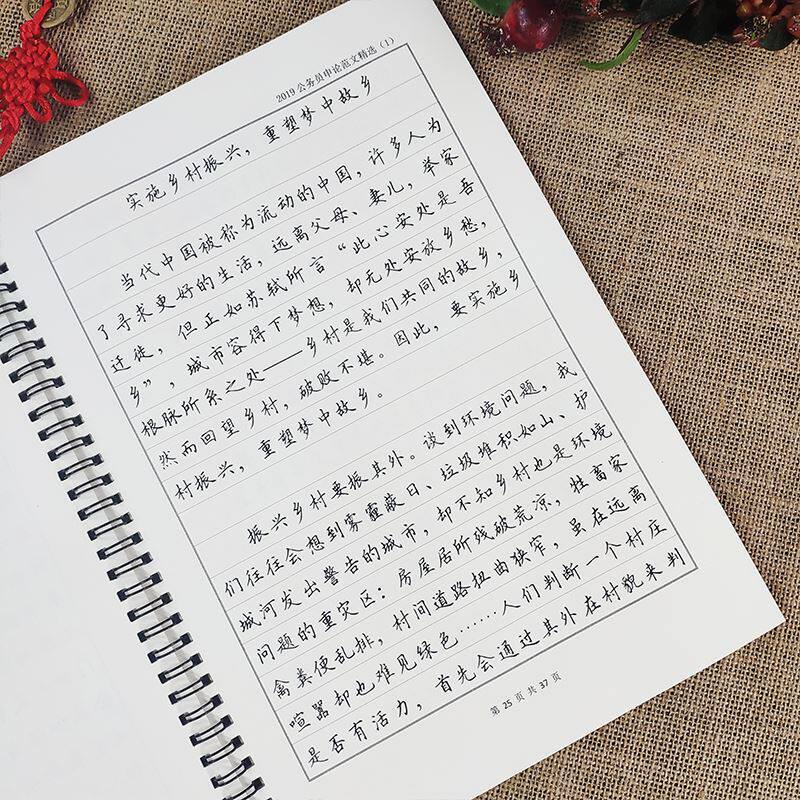 2019公务员申论范文精选（1）
实施乡村振兴，重塑梦中故乡
当代中国被称为流动的中国，许多人为
了寻求更好的生活，远离父母、妻儿，举家
迁徙，但正如苏轼所言“此心安处是吾
乡”，城市容得下梦想，却无处安放乡愁，
根脉所系之处——乡村是我们共同的故乡，
然而回望乡村，破败不堪。因此，要实施乡
村振兴，重塑梦中故乡。
振兴乡村要振其外。谈到环境问题，我
们往往会想到雾霾蔽日、垃圾堆积如山、护
城河发出警告的城市，却不知乡村也是环境
问题的重灾区：房屋居所残破荒凉，牲畜家
禽粪便乱排，村间道路扭曲狭窄，虽在远离
喧嚣却也难见绿色……人们判断一个村庄
是否有活力，首先会通过其外在村貌来判
第 25 页 共 37 页